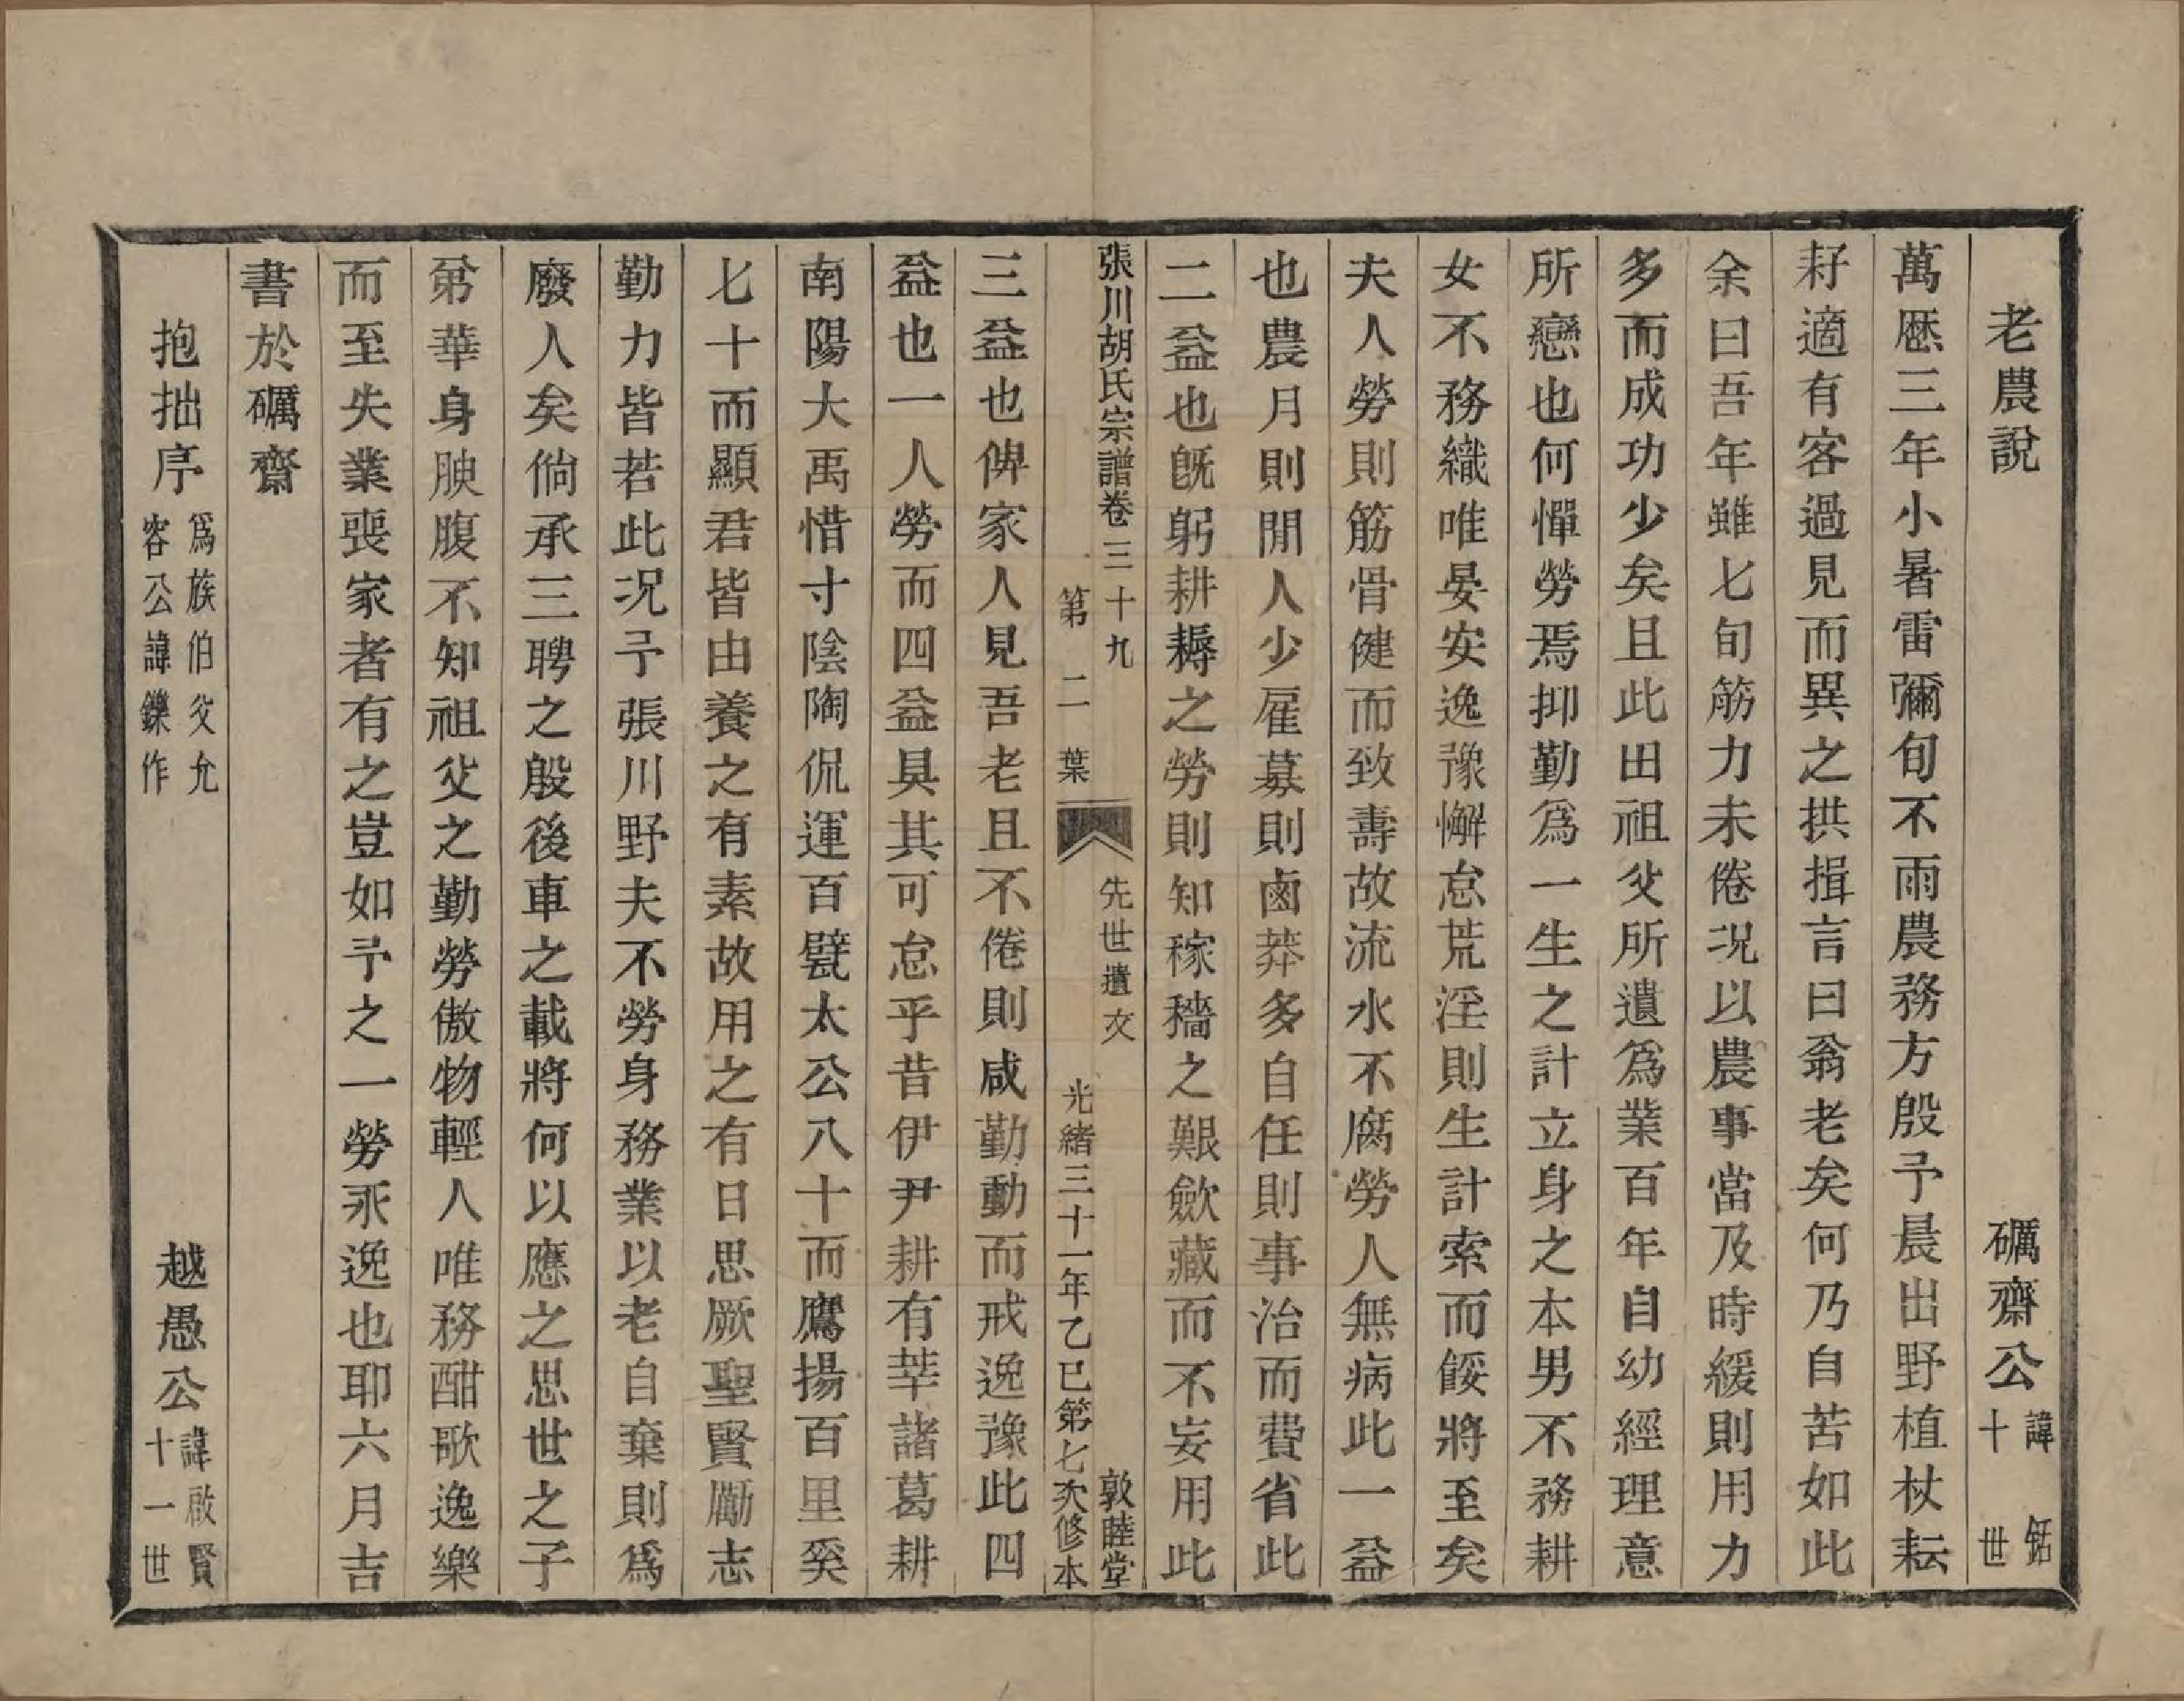 老農說　礪齋公諱銛十世
萬厯三年小暑雷彌旬不雨農務方殷予晨出野植杖耘
耔適有客過見而異之拱揖言曰翁老矣何乃自苦如此
余曰吾年雖七旬筋力未倦況以農事當及時緩則用力
多而成功少矣且此田祖父所遺爲業百年自幼經理意
所戀也何憚勞焉抑勤爲一生之計立身之本男不務耕
女不務織唯晏安逸豫懈怠荒淫則生計索而餒將至矣
夫人勞則筋骨健而致壽故流水不腐勞人無病此一益
也農月則閒人少雇募則鹵莽多自任則事治而費省此
二益也旣躬耕耨之勞則知稼穡之艱歛藏而不妄用此
張川胡氏宗譜卷三十九　先世遺文　敦睦堂
第二葉　光緒三十一年乙巳第七次修本
三益也俾家人見吾老且不倦則咸勤動而戒逸豫此四
益也一人勞而四益具其可怠乎昔伊尹耕有莘諸葛耕
南陽大禹惜寸陰陶侃運百甓太公八十而鷹揚百里奚
七十而顯君皆由養之有素故用之有日思厥聖賢勵志
勤力皆若此況予張川野夫不勞身務業以老自棄則爲
廢人矣倘承三聘之殷後車之載將何以應之思世之子
弟華身腴腹不知祖父之勤勞傲物輕人唯務酣歌逸樂
而至失業喪家者有之豈如予之一勞永逸也耶六月吉
書於礪齋
抱拙序爲族伯父允容公諱鑠作　越愚公諱啟賢十一世